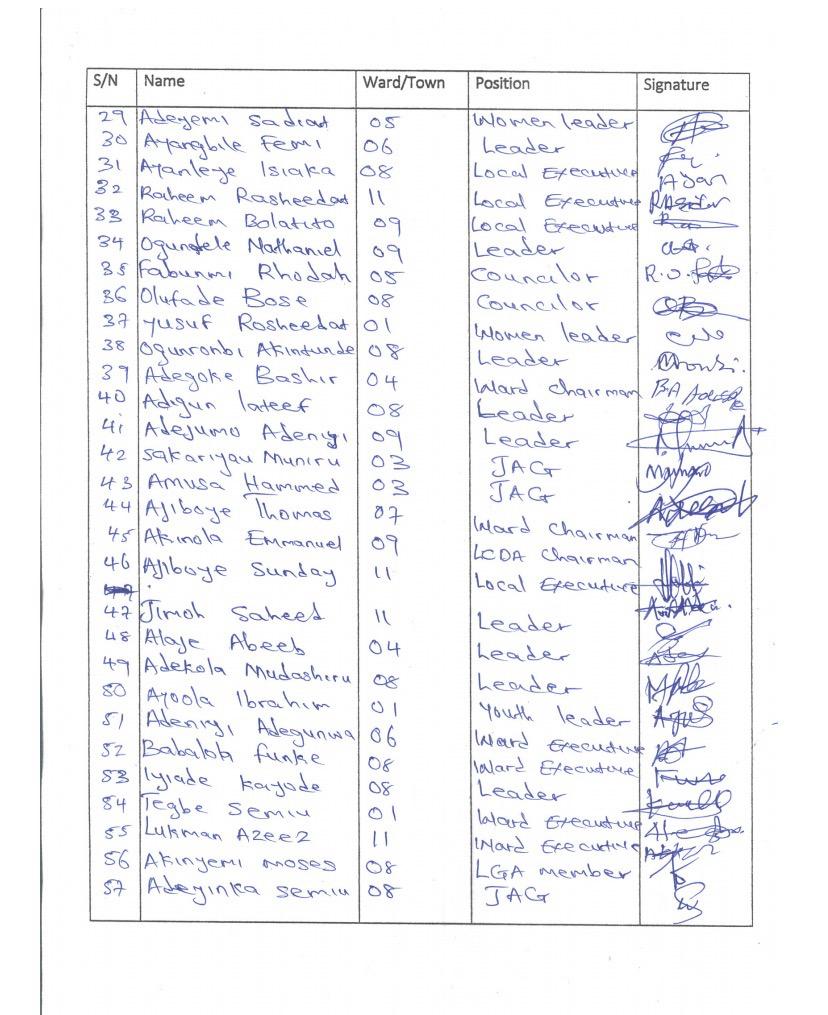 S/N Name Ward/Town Position Signature
29 Adeyemi Sadiat 05 Women leader
30 Ayangbile Femi 06 Leader
31 Ayanleye Isiaka 08 Local Executive
32 Raheem Rasheedat 11 Local Executive
33 Raheem Bolatito 09 Local Executive
34 Ogundele Nathaniel 09 Leader
35 Fabunmi Rhodah 05 Councilor
36 Olufade Bose 08 Councilor
37 Yusuf Rosheedat 01 Women leader
38 Ogunronbi Akintunde 08 Leader
39 Adegoke Bashir 04 Ward Chairman
40 Adigun lateef 08 Leader
41 Adejumo Adeniyi 09 Leader
42 Sakariyau Muniru 03 JAG
43 Amusa Hammed 03 JAG
44 Ajiboye Thomas 07 Ward Chairman
45 Akinola Emmanuel 09 LCDA Chairman
46 Ajiboye Sunday 11 Local Executive
47 Jimoh Saheed 11 Leader
48 Alaje Abeeb 04 Leader
49 Adekola Mudashiru 08 Leader
50 Ayoola Ibrahim 01 Youth leader
51 Adeniyi Adegunwa 06 Ward Executive
52 Babalola funke 08 Ward Executive
53 Iyiade kayode 08 Leader
54 Tegbe Semiu 01 Ward Executive
55 Lukman Azeez 11 Ward Executive
56 Akinyemi moses 08 LGA member
57 Adeyinka semiu 08 JAG